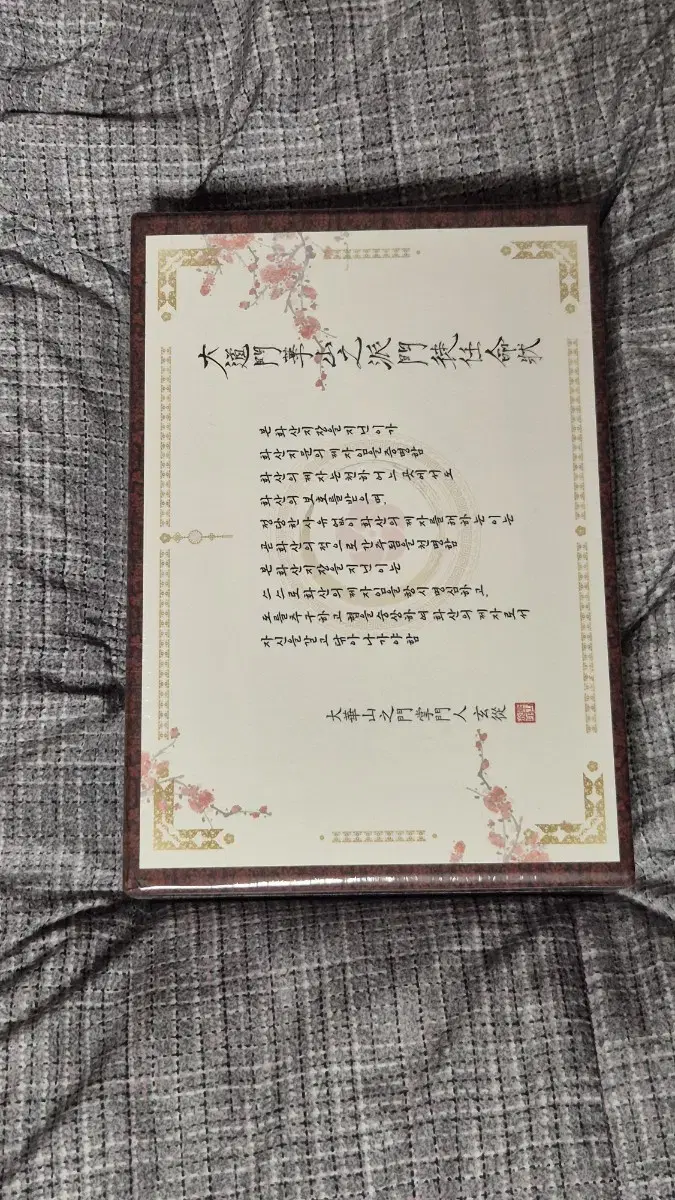 大道門華山之派門徒任命狀
본 화산지장을 지닌 이가
화산지문의 제자임을 증명함
화산의 제자는 천하 어느 곳에서도
화산의 보호를 받으며,
정당한 사유 없이 화산의 제자를 해하는 이는
곧 화산의 적으로 간주됨을 천명함
본 화산지장을 지닌 이는
스스로 화산의 제자임을 항시 명심하고,
도를 추구하고 협을 숭상하며 화산의 제자로서
자신을 갈고 닦아 나가야 함
大華山之門掌門人 玄從